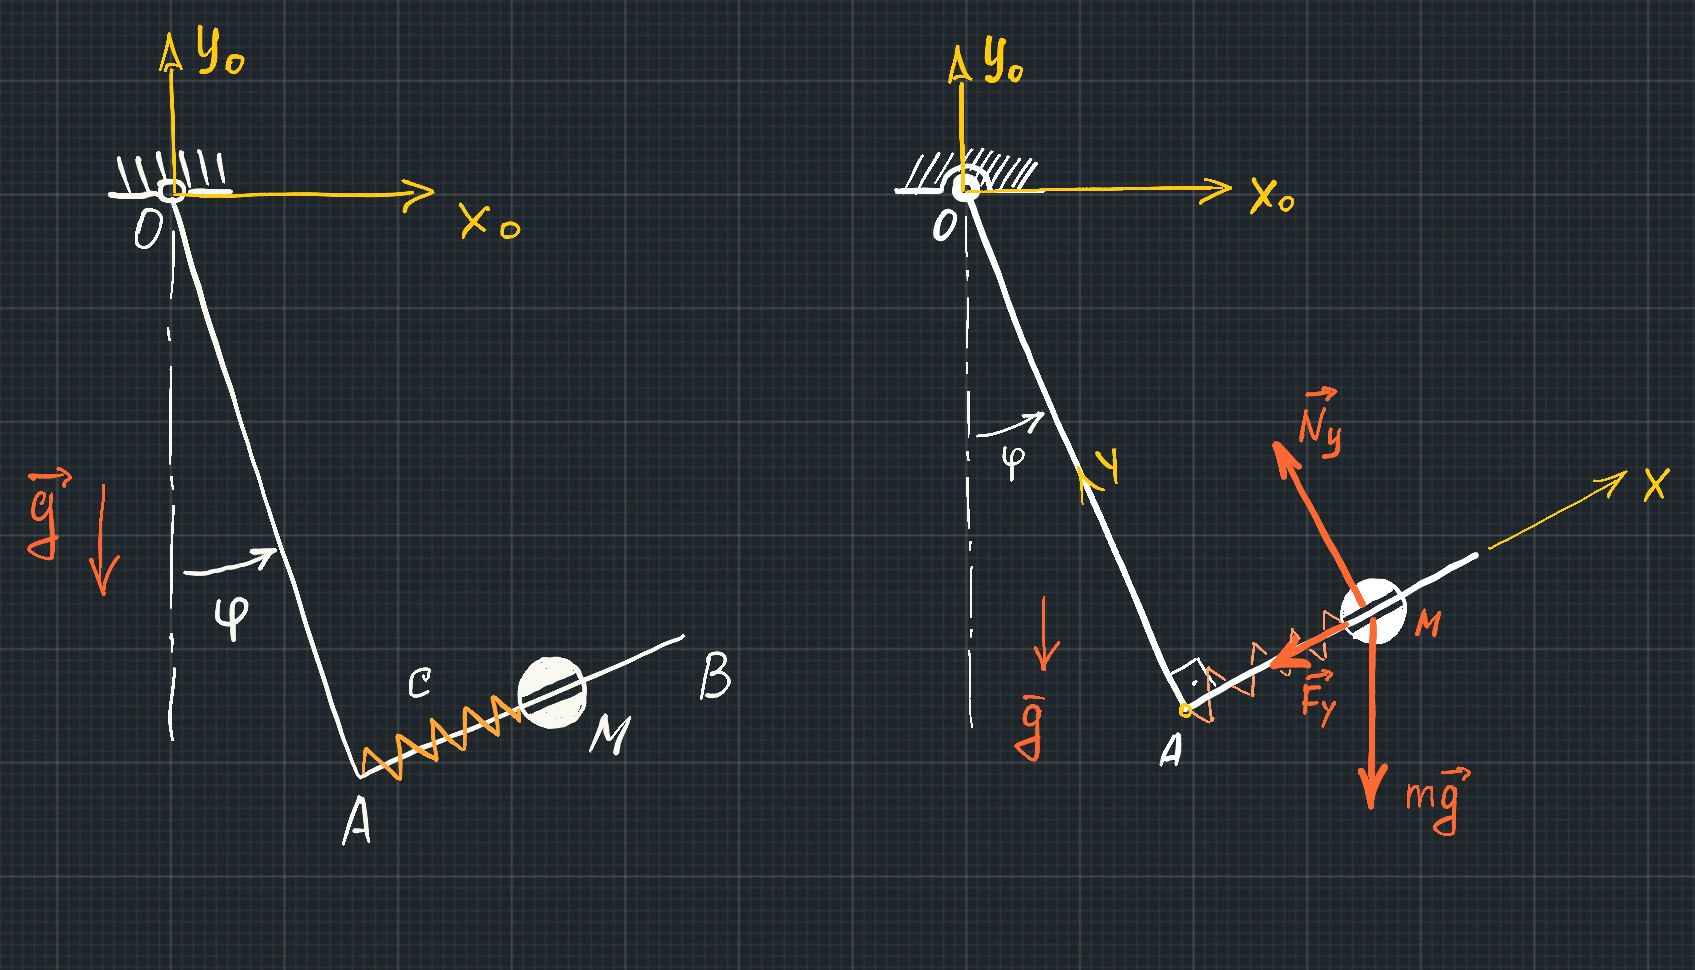 y₀
x₀
O
g⃗
φ
C
B
M
A
y₀
x₀
O
N⃗y
φ
y
x
M
F⃗y
g⃗
A
mg⃗